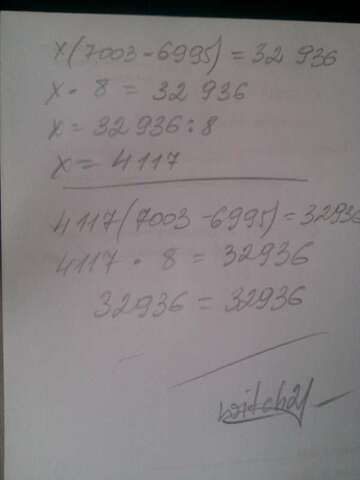 x(7003-6995) = 32 936
x · 8 = 32 936
x = 32 936:8
x = 4117
4117(7003-6995)=32936
4117 · 8 = 32936
32936 = 32936
witch21